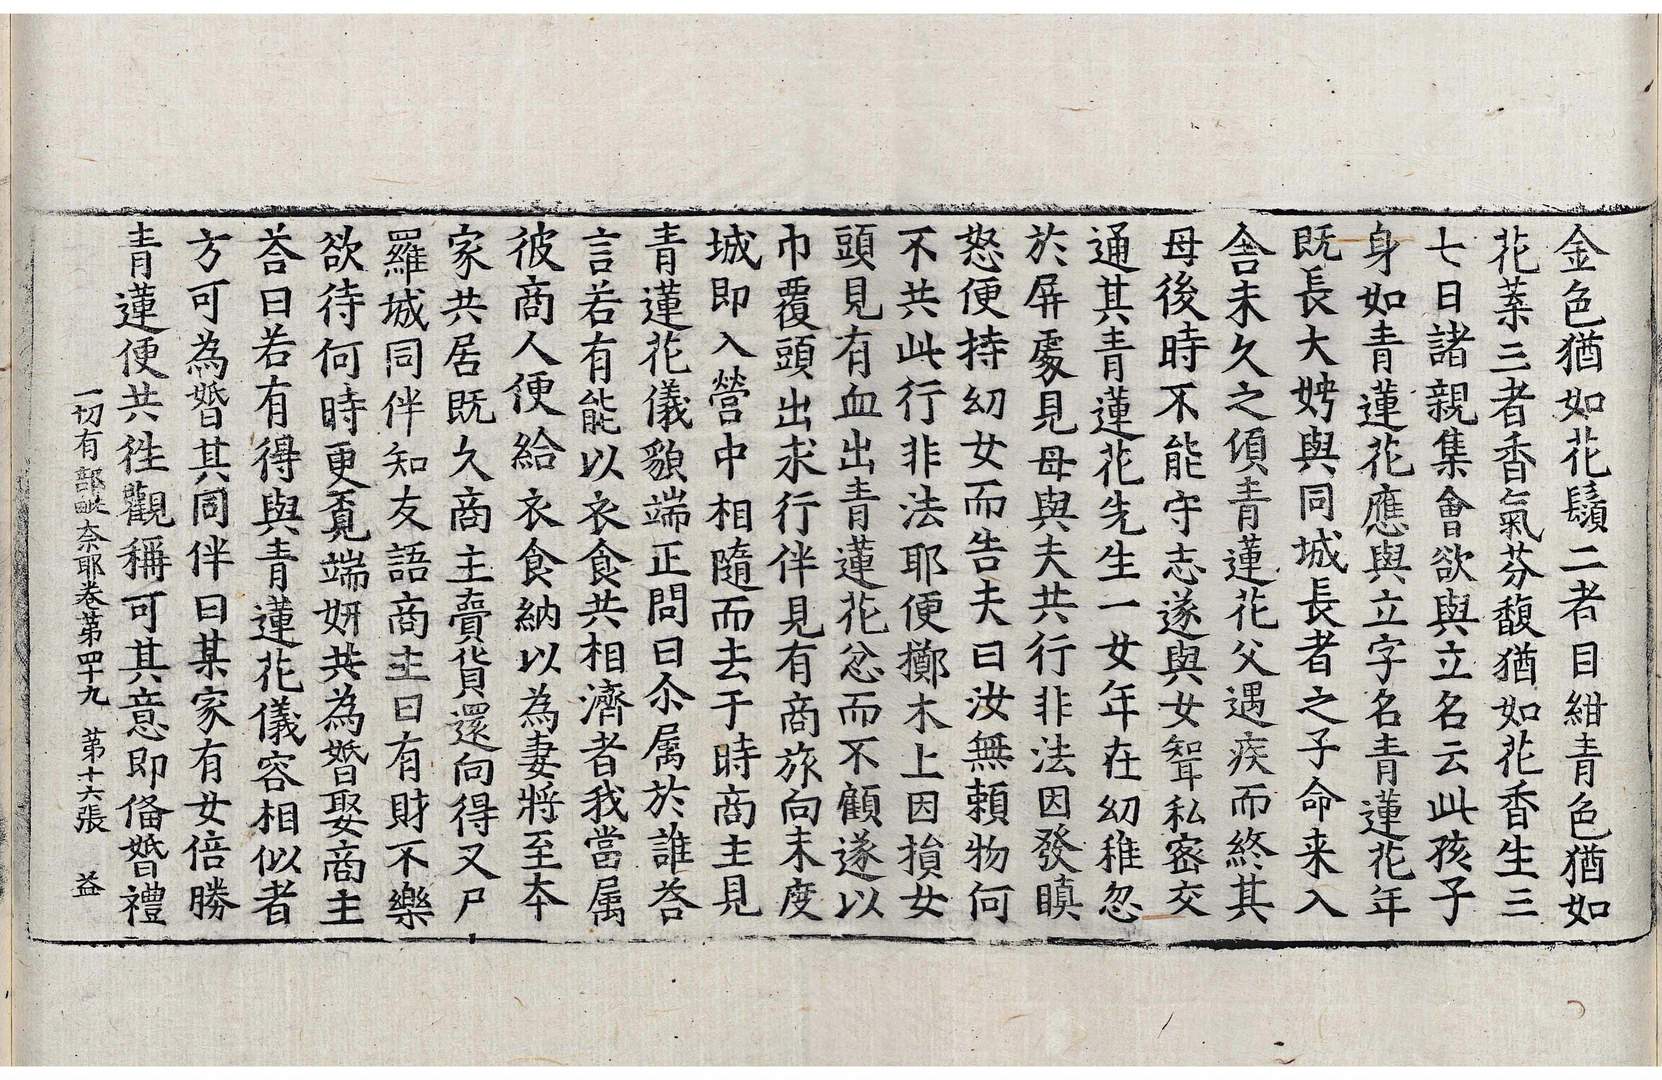 金色猶如花鬚二者目紺青色猶如
花葉三者香氣芬馥猶如花香生三
七日諸親集會欲與立名云此孩子
身如青蓮花應與立字名青蓮花年
既長大娉與同城長者之子命来入
舎未久之傾青蓮花父遇疾而終其
母後時不能守志遂與女聟私密交
通其青蓮花先生一女年在㓜稚忽
於屏處見母與夫共行非法因發瞋
怒便持㓜女而告夫曰汝無賴物何
不共此行非法耶便擲木上因損女
頭見有血出青蓮花忿而不顧遂以
巾覆頭出求行伴見有商旅向末度
城即入營中相隨而去于時商主見
青蓮花儀貌端正問曰尒属於誰荅
言若有能以衣食共相濟者我當属
彼商人便給衣食納以為妻將至本
家共居既久商主賣貨還向得叉尸
羅城同伴知友語商主曰有財不樂
欲待何時更覔端妍共為婚娶商主
荅曰若有得與青蓮花儀容相似者
方可為婚其同伴曰某家有女倍勝
青蓮便共徃觀稱可其意即俻婚禮
一切有部毗奈耶卷第四十九　第十六張　益